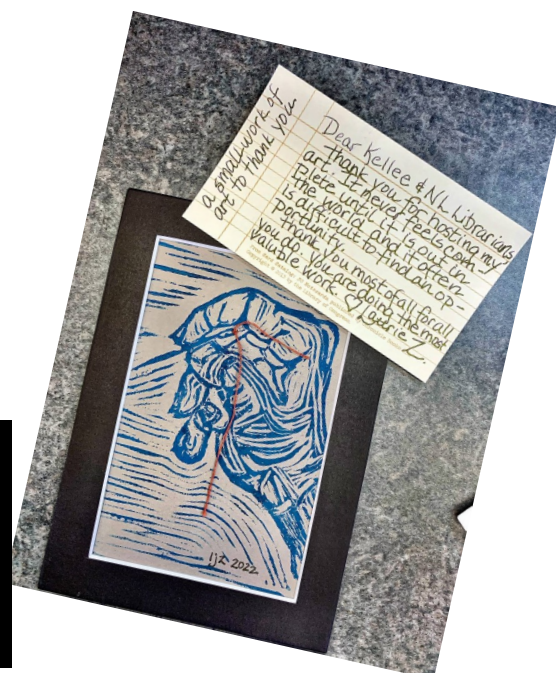 a small work of
art to thank you
Dear Kellee & NL Librarians
Thank you for hosting my
art. It never feels com-
plete until it is out in
the world and it often
is difficult to find an op-
portunity.
Thank you most of all for all
you do. You are doing the most
valuable work. Laurie Z.
ljz 2022